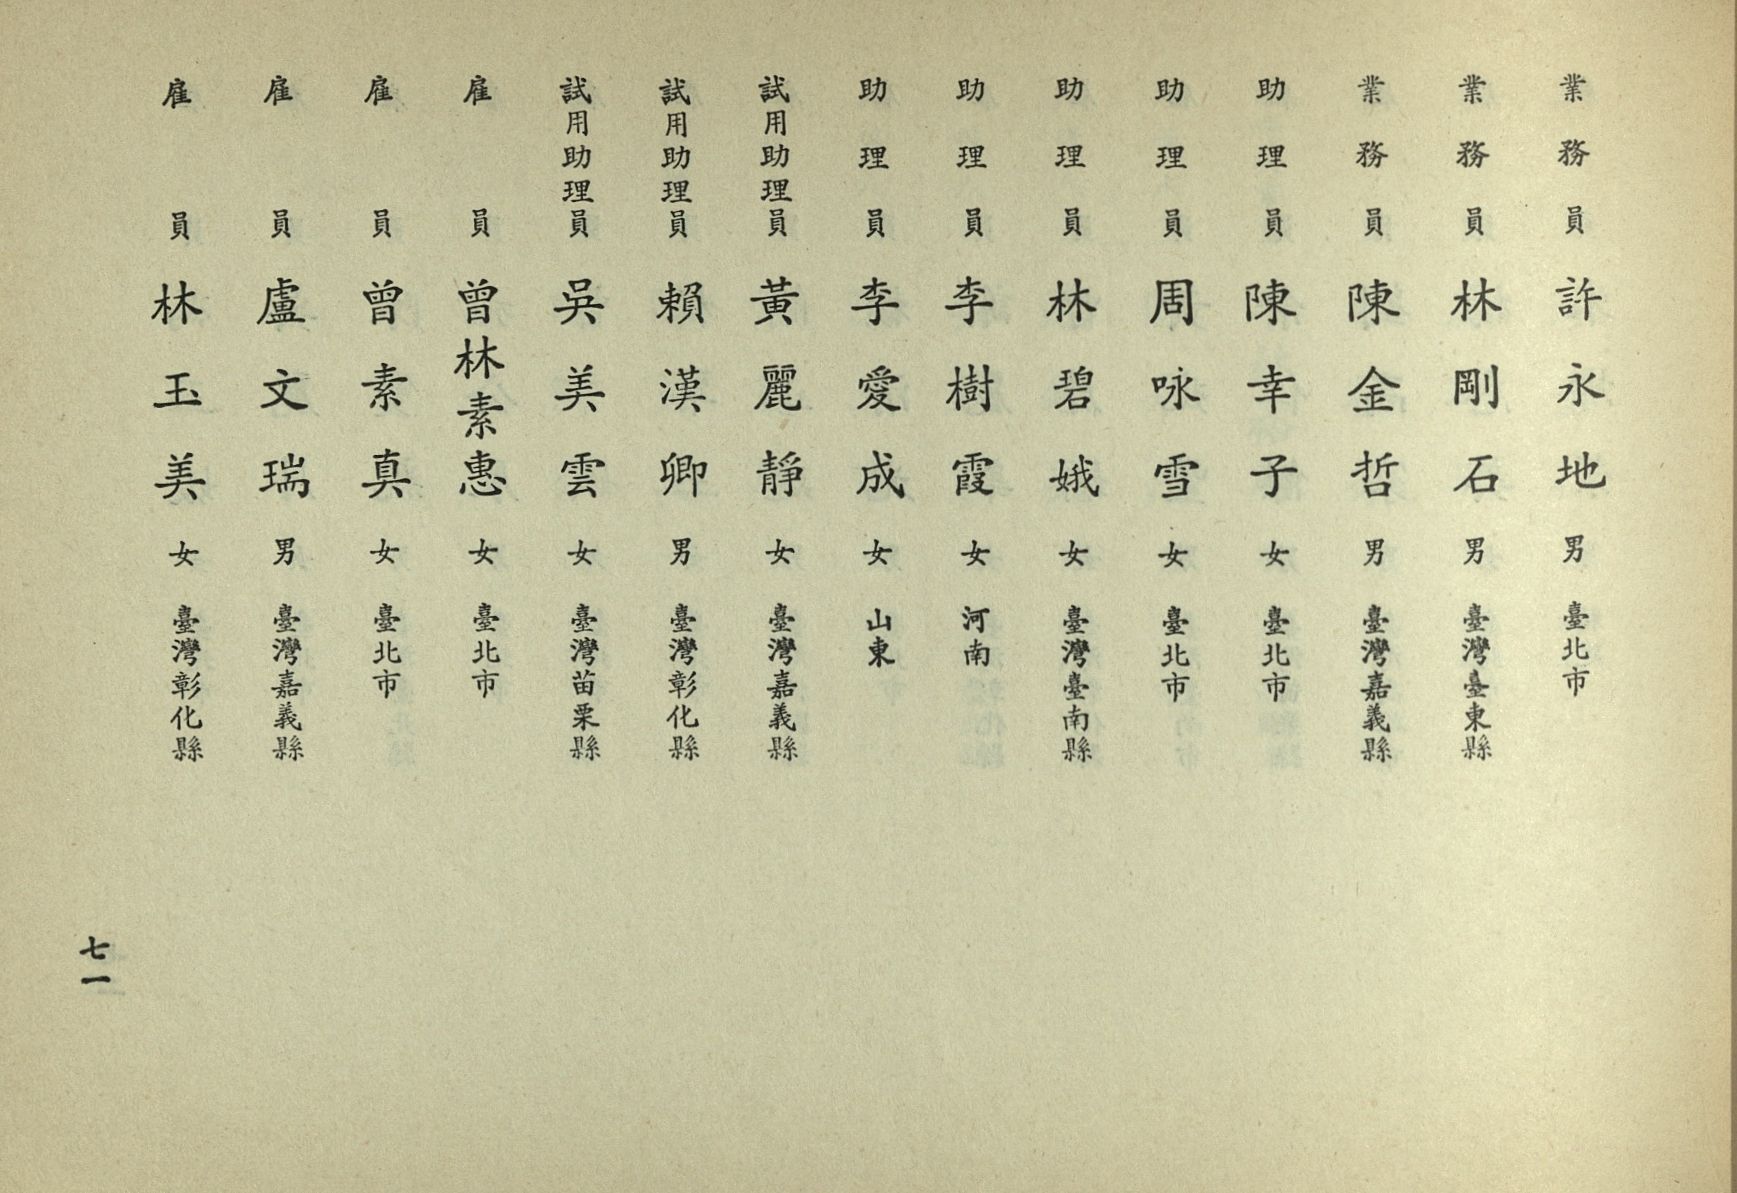 業務員 許永地 男 臺北市
業務員 林剛石 男 臺灣臺東縣
業務員 陳金哲 男 臺灣嘉義縣
助理員 陳幸子 女 臺北市
助理員 周咏雪 女 臺北市
助理員 林碧娥 女 臺灣臺南縣
助理員 李樹霞 女 河南
助理員 李愛成 女 山東
試用助理員 黃麗靜 女 臺灣嘉義縣
試用助理員 賴漢卿 男 臺灣彰化縣
試用助理員 吳美雲 女 臺灣苗栗縣
雇員 曾林素惠 女 臺北市
雇員 曾素真 女 臺北市
雇員 盧文瑞 男 臺灣嘉義縣
雇員 林玉美 女 臺灣彰化縣
七一